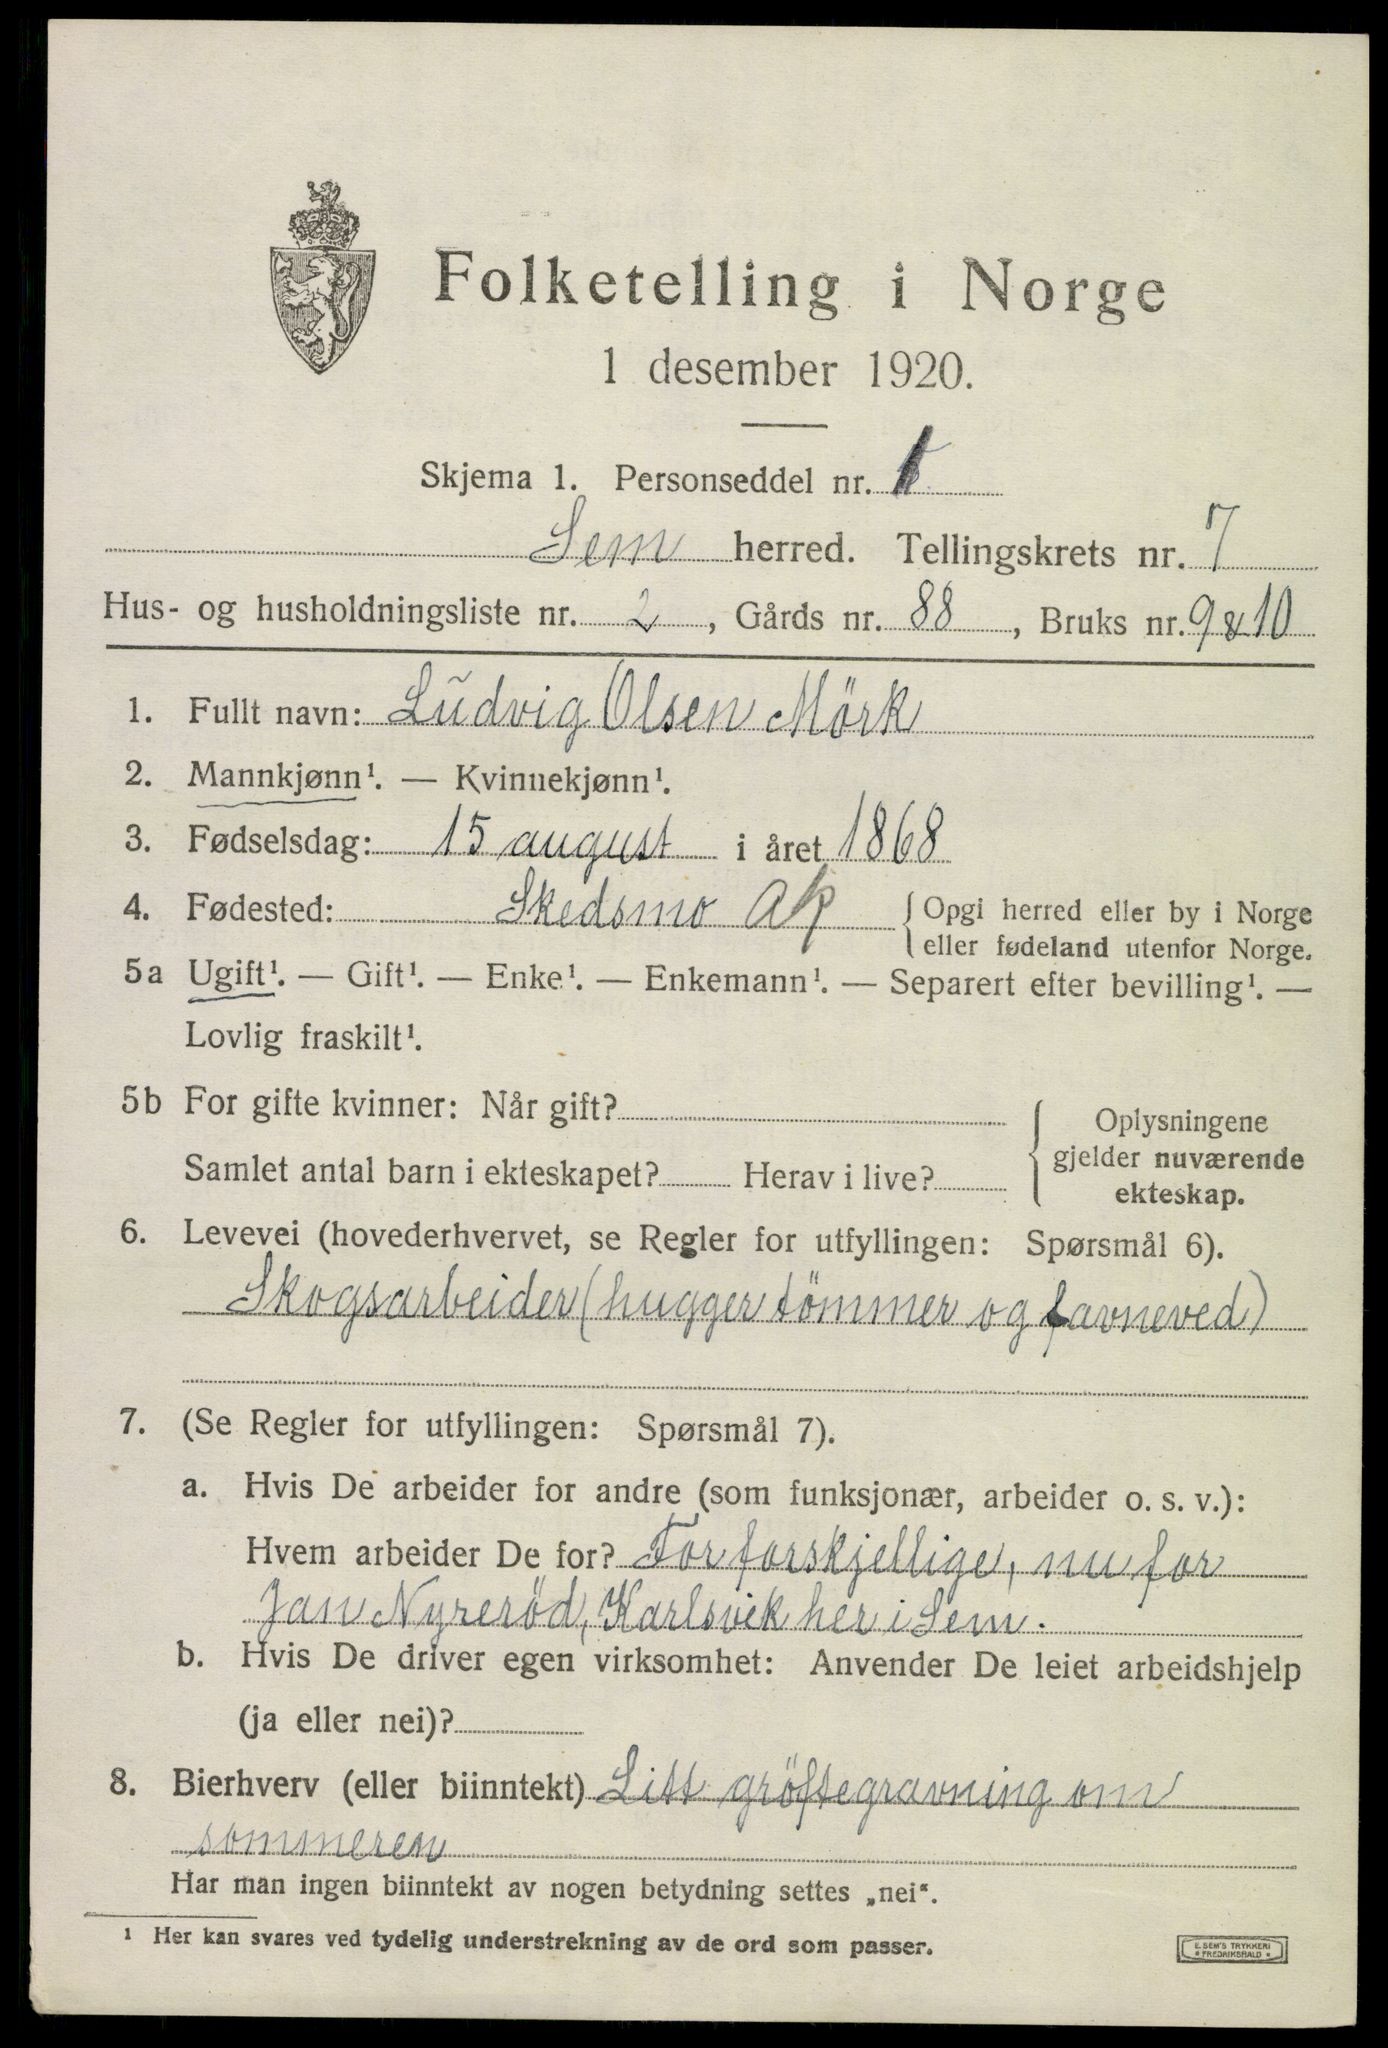 Folketelling i Norge
1 desember 1920.
Skjema 1. Personseddel nr.
Sem herred. Tellingskrets nr. 7
Hus- og husholdningsliste nr. 2, Gårds nr. 88, Bruks nr. 9 & 10
1. Fullt navn: Ludvig Olsen Mörk
2. Mannkjønn¹. — Kvinnekjønn¹.
3. Fødselsdag: 15 august i året 1868
4. Fødested: Skedsmo Ak { Opgi herred eller by i Norge
eller fødeland utenfor Norge.
5a Ugift¹. — Gift¹. — Enke¹. — Enkemann¹. — Separert efter bevilling¹. —
Lovlig fraskilt¹.
5b For gifte kvinner: Når gift?
Oplysningene
gjelder nuværende
ekteskap.
Samlet antal barn i ekteskapet? Herav i live?
6. Levevei (hovederhvervet, se Regler for utfyllingen: Spørsmål 6).
Skogsarbeider (hugger tömmer og favneved)
7. (Se Regler for utfyllingen: Spørsmål 7).
a. Hvis De arbeider for andre (som funksjonær, arbeider o. s. v.):
Hvem arbeider De for? For forskjellige, nu for
Jan Nyreröd, Karlsvik her i Sem.
b. Hvis De driver egen virksomhet: Anvender De leiet arbeidshjelp
(ja eller nei)?
8. Bierhverv (eller biinntekt) Litt gröftegravning om
sommeren
Har man ingen biinntekt av nogen betydning settes „nei“.
¹ Her kan svares ved tydelig understrekning av de ord som passer.
E. SEM'S TRYKKERI
* FREDRIKSHALD *